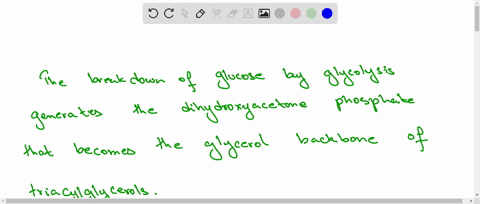 The breakdown of glucose by glycolysis
generates the dihydroxyacetone phosphate
that becomes the glycerol backbone of
triacylglycerols.